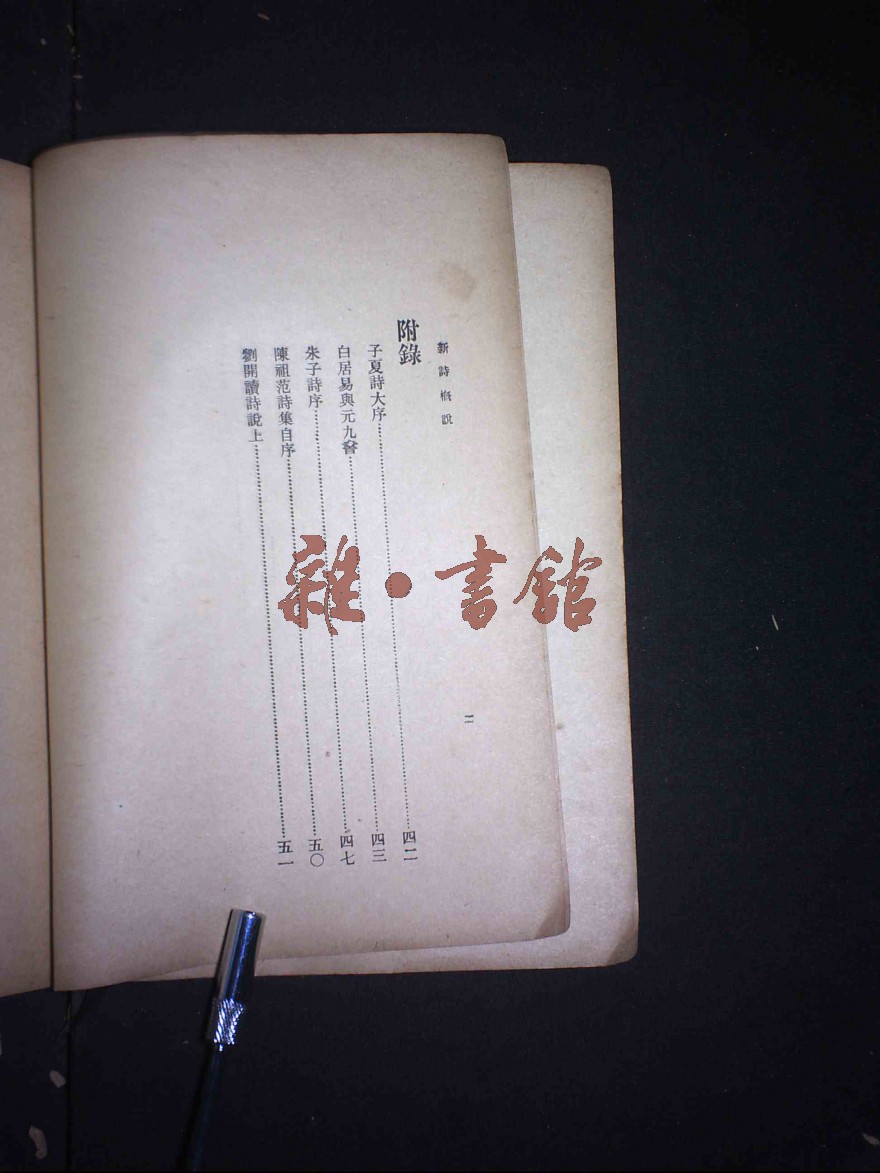 新詩概說
二
附錄
子夏詩大序……四二
白居易與元九書……四三
朱子詩序……四七
陳祖范詩集自序……五〇
劉開讀詩說上……五一
雜·書館